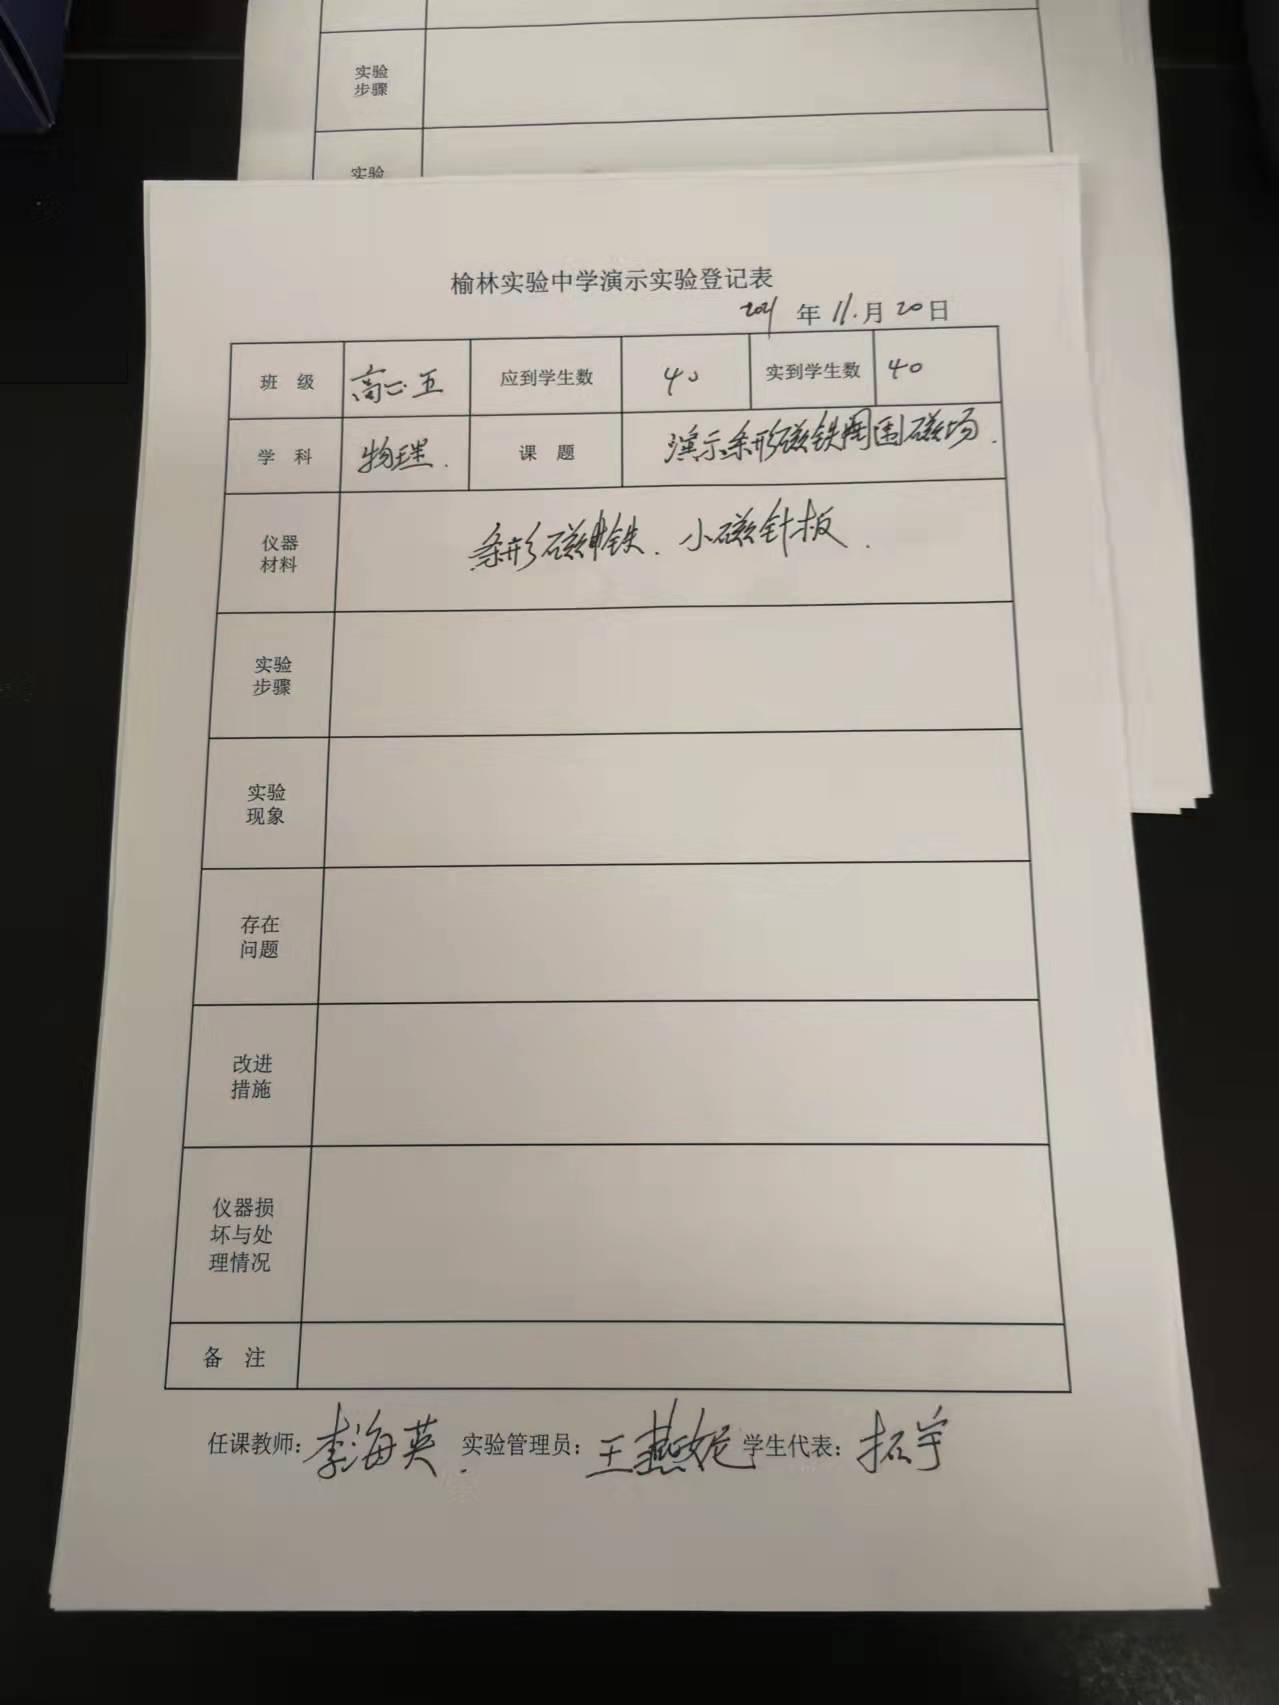 实验
步骤
实验
榆林实验中学演示实验登记表
2021 年 11.月 20 日
班 级 高二五 应到学生数 40 实到学生数 40
学 科 物理. 课 题 演示条形磁铁周围磁场.
仪器
材料
条形磁铁. 小磁针板.
实验
步骤
实验
现象
存在
问题
改进
措施
仪器损
坏与处
理情况
备 注
任课教师: 李海英. 实验管理员: 王燕妮 学生代表: 拓宇